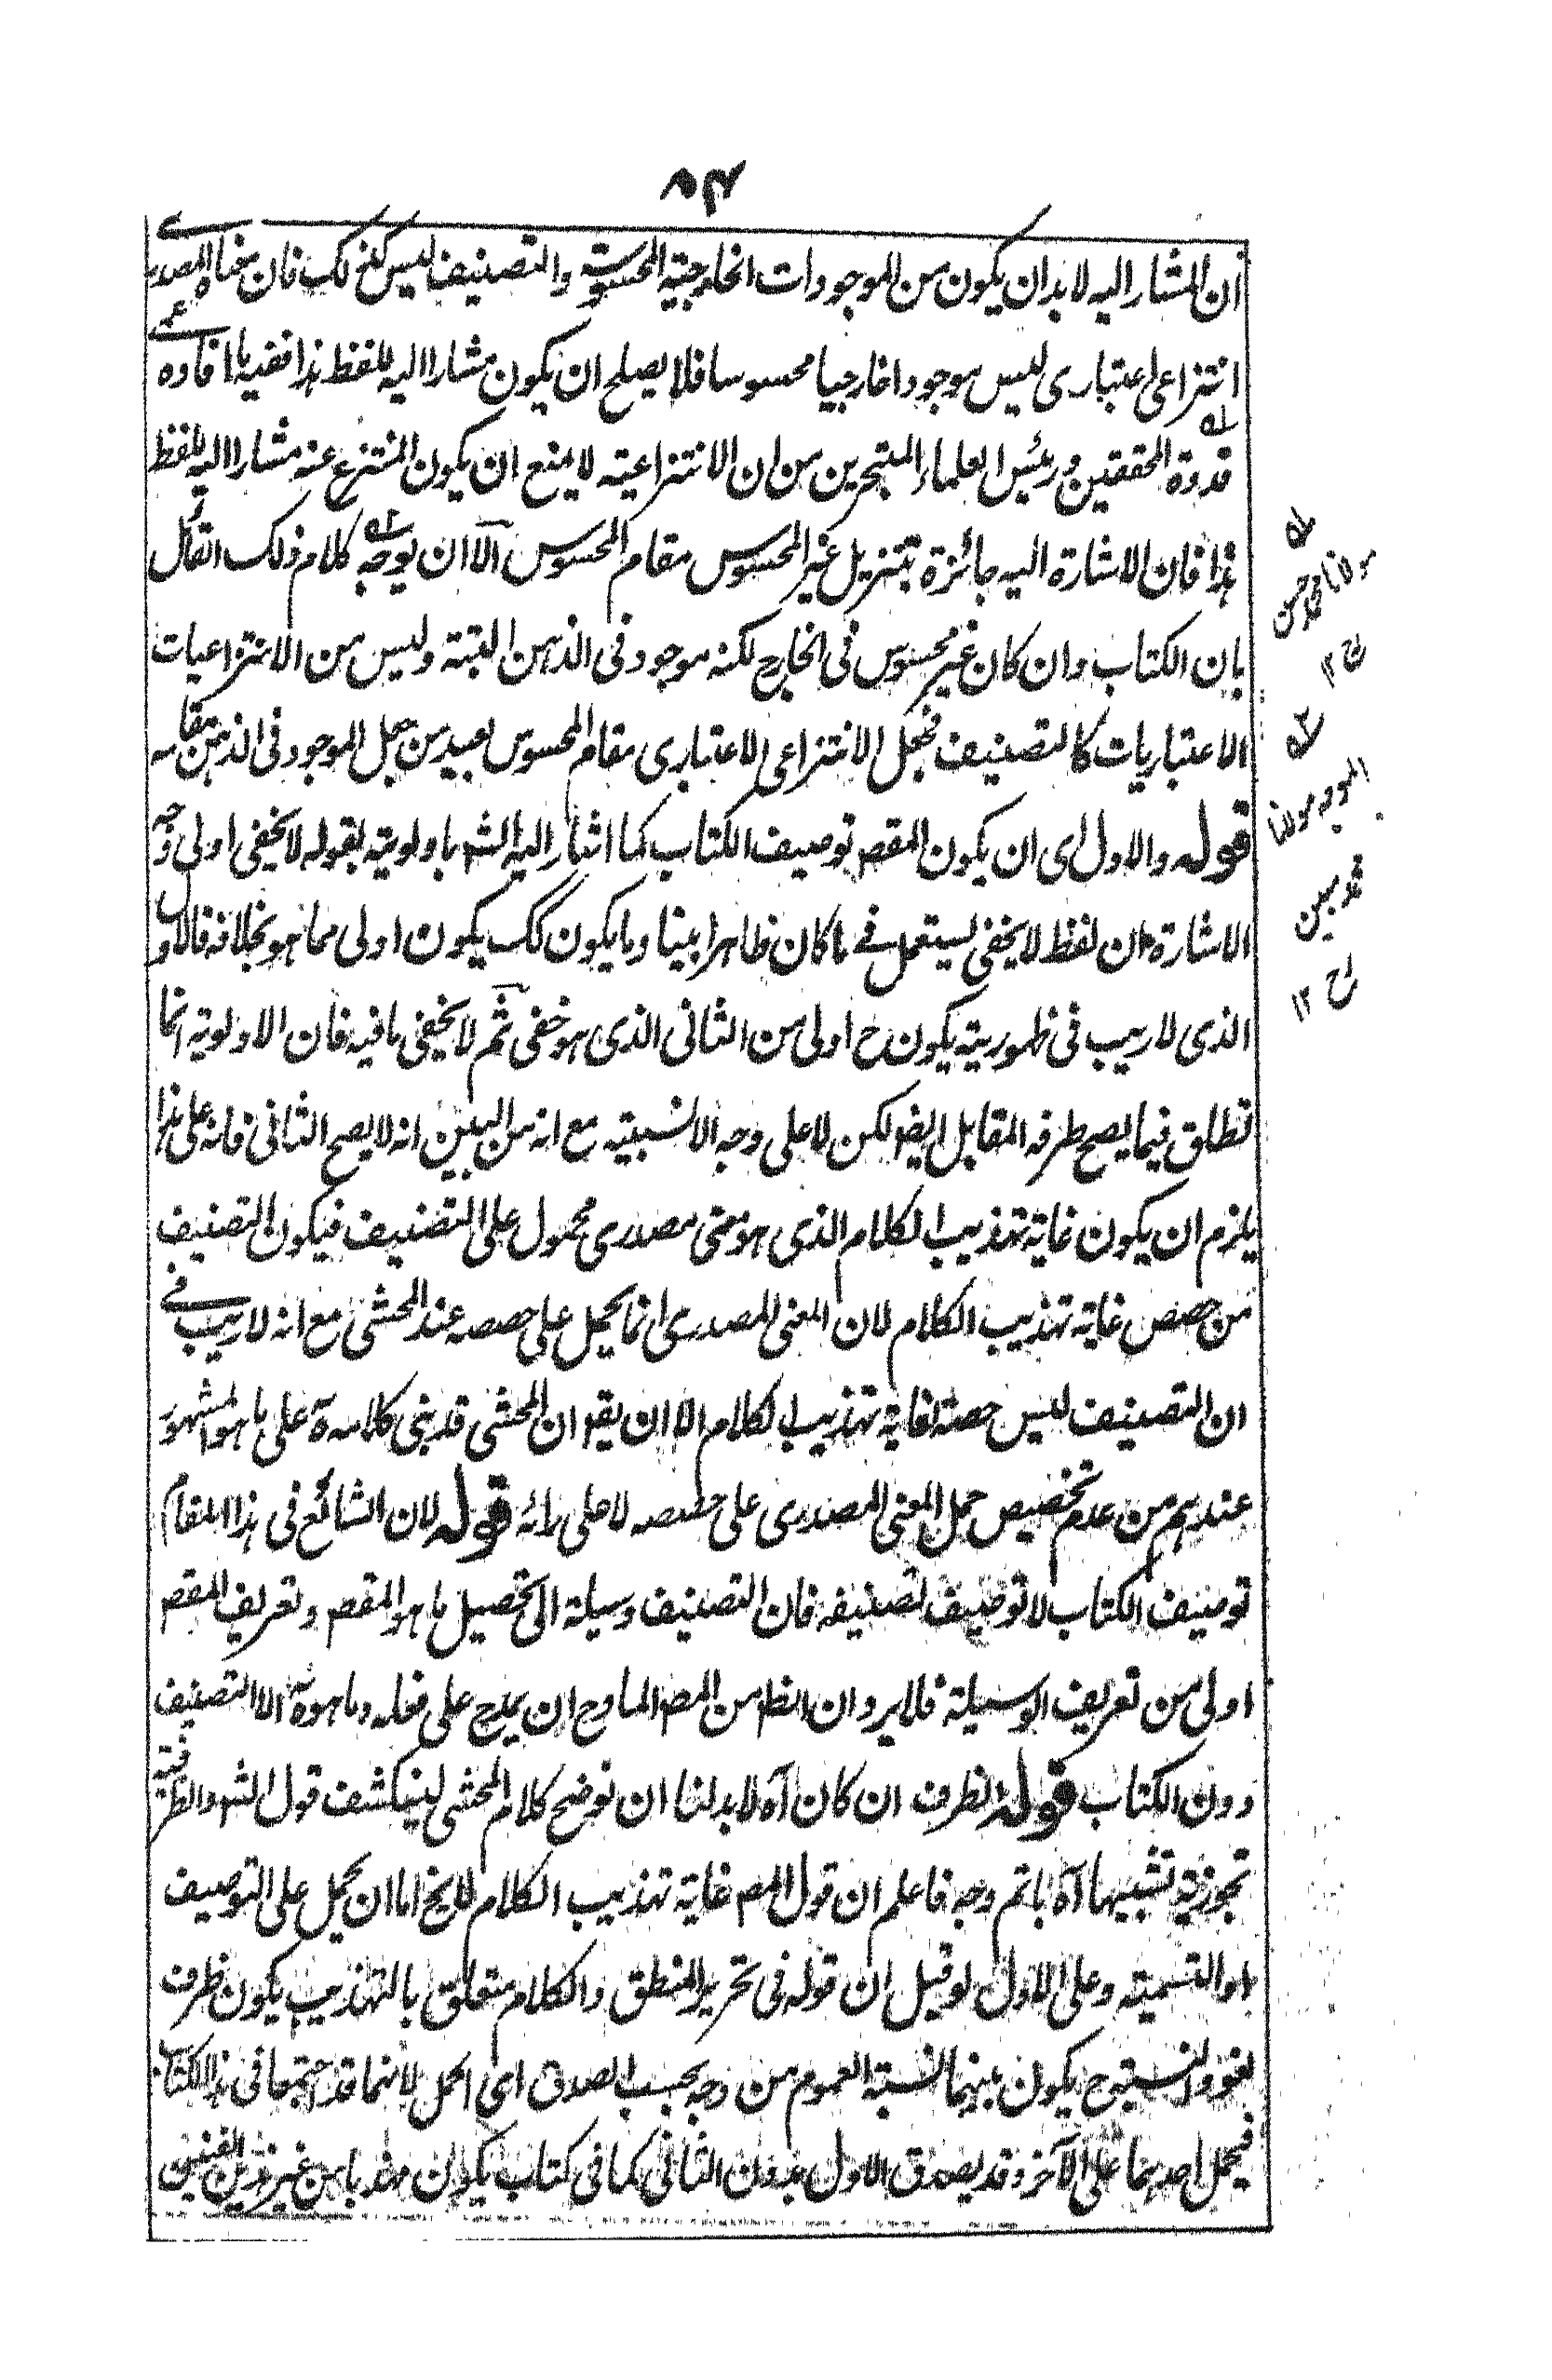 ٨٤
ان المشار اليه لا بد ان يكون من الموجودات الخارجية المحسوسة والتصنيف ليس كذلك فان معناه المصدرى
انتزاعى اعتبارى ليس موجودا خارجيا محسوسا فلا يصلح ان يكون مشارا اليه للفظ هذا ففيه ما افاده
قدوة المحققين ورئيس العلماء المتبحرين من ان الانتزاعية لا يمنع ان يكون المنتزع عنه مشارا اليه للفظ
هذا فان الاشارة اليه جائزة بتنزيل غير المحسوس مقام المحسوس الا ان يوجه كلام ذلك القائل
بان الكتاب وان كان غير محسوس فى الخارج لكنه موجود فى الذهن البتة وليس من الانتزاعيات
الاعتباريات كالتصنيف فجعل الانتزاعى الاعتبارى مقام المحسوس بعيد من جعل الموجود فى الذهن مقامه
قوله والاول اى ان يكون المقص توصيف الكتاب كما اشار اليه الشم باولويته بقوله لا يخفى اولى وجه
الاشارة ان لفظ لا يخفى يستعمل فى ما كان ظاهرا بينا وما يكون كك يكون اولى مما هو بخلافه فالاول
الذى لا ريب فى ظهوريته يكون ح اولى من الثانى الذى هو خفى ثم لا يخفى ما فيه فان الاولوية انما
تطلق فيما يصح طرفه المقابل ايضا لكن لا على وجه الانسبية مع انه من البين انه لا يصح الثانى فانه على هذا
يلزم ان يكون غاية تهذيب الكلام الذى هو معنى مصدرى محمول على التصنيف فيكون التصنيف
من حصص غاية تهذيب الكلام لان المعنى المصدرى انما يحمل على حصصه عند المحشى مع انه لا ريب فى
ان التصنيف ليس حصة لغاية تهذيب الكلام الا ان يقو ان المحشى قد بنى كلامه ة على ما هو المشهور
عندهم من عدم تخصيص حمل المعنى المصدرى على حصصه لا على رائه قوله لان الشائع فى هذا المقام
توصيف الكتاب لا توصيف تصنيفه فان التصنيف وسيلة الى تحصيل ما هو المقص وتعريف المقص
اولى من تعريف الوسيلة فلا يرد ان الظ من المص المادح ان يمدح على فعله وما هو ة الا التصنيف
دون الكتاب قوله الظرف ان كان آه لا بد لنا ان نوضح كلام المحشى لينكشف قول الشم والظرفية
تجوزية تشبيها آه باتم وجه فاعلم ان قول المص غاية تهذيب الكلام لا يخ اما ان يحمل على التوصيف
او التسمية وعلى الاول لو قيل ان قوله فى تحرير المنطق والكلام متعلق بالتهذيب يكون ظرف
لغو والنسبة ح يكون بينهما نسبة العموم من وجه بحسب الصدق اى الحمل لانهما قد اجتمعا فى هذا الكتاب
فيحمل احدهما على الآخر وقد يصدق الاول بدون الثانى كما فى كتاب يكون مهذبا من غير هذين الفنين
مولانا محمد حسن
رح ١٢
الموجه مولانا
محمد مبين
رح ١٢